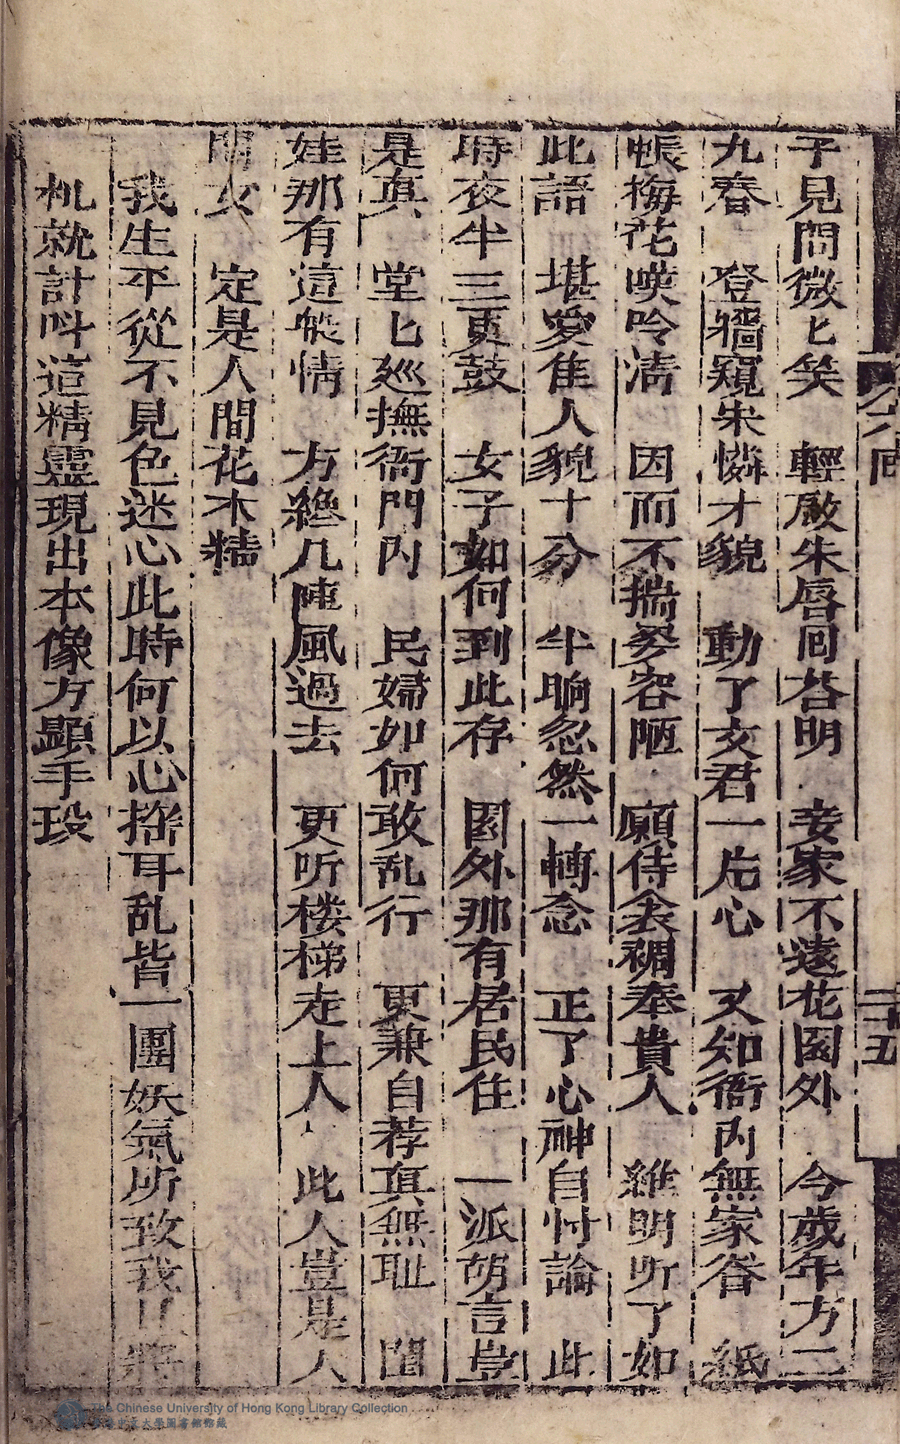 子見問微匕笑　輕啟朱唇囘荅明　妾家不遠花園外　今歲年方二
九春　登牆窺宋憐才貌　動了文君一片心　又知衙內無家眷　紙
帳梅花嘆吟清　因而不揣姿容陋　願侍衾裯奉貴人　維明听了如
此語　堪愛隹人貌十分　半晌忽然一轉念　正了心神自忖論　此
時夜半三更鼓　女子如何到此存　園外那有居民住　一派胡言豈
是真　堂匕廵撫衙門內　民婦如何敢乱行　更兼自荐真無耻　閨
娃那有這般情　方纔几陣風過去　更听楼梯走上人　此人豈是人
間女　定是人間花木精
我生平從不見色迷心此時何以心搖耳乱皆一團妖氣所致我且將
机就計呌這精靈現出本像方顯手段
六囘
二十五
The Chinese University of Hong Kong Library Collection
香港中文大學圖書館館藏